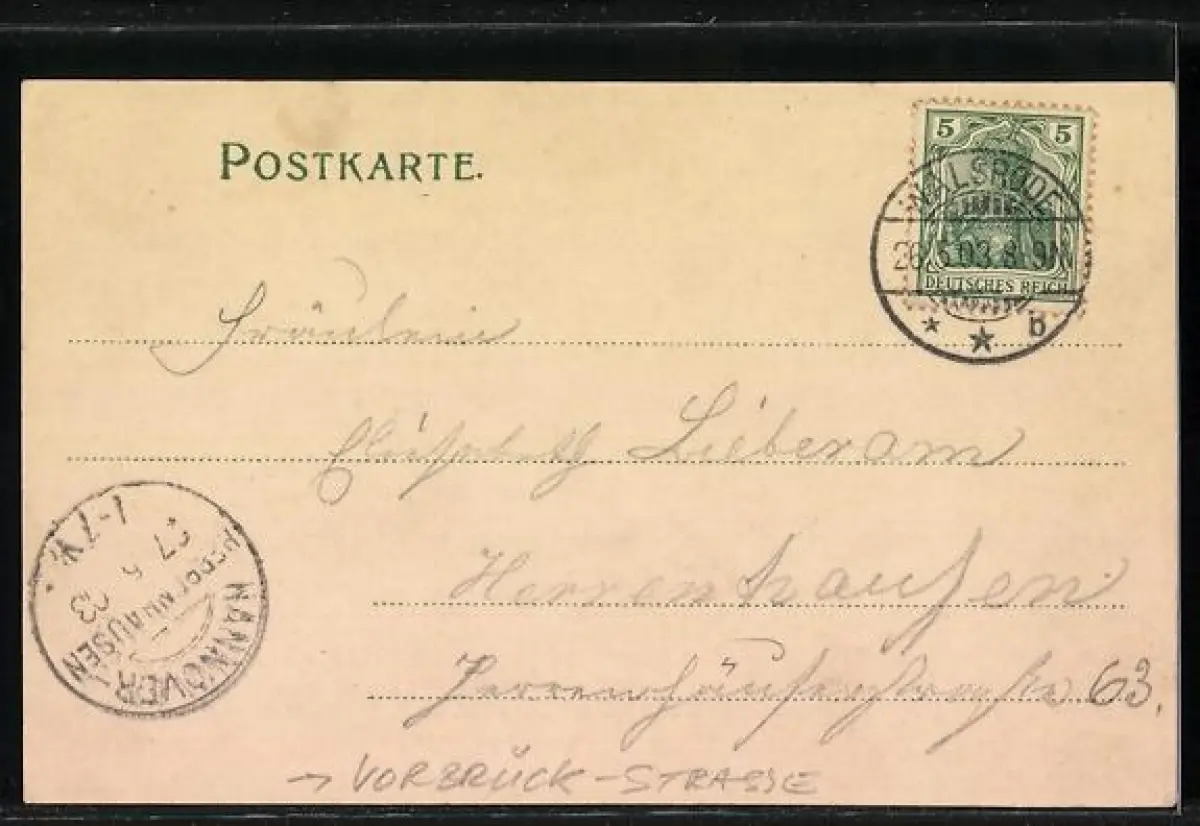 POSTKARTE.
5 5
WALSRODE
26.5.03. 8-9N
DEUTSCHES REICH
* * b
Fräulein
Elisabeth Lieberam
Herrenhausen
Herrenhäuserstraße 63.
HANNOVER-
HERRENHAUSEN
27 5 03
→ VORBRÜCK-STRASSE